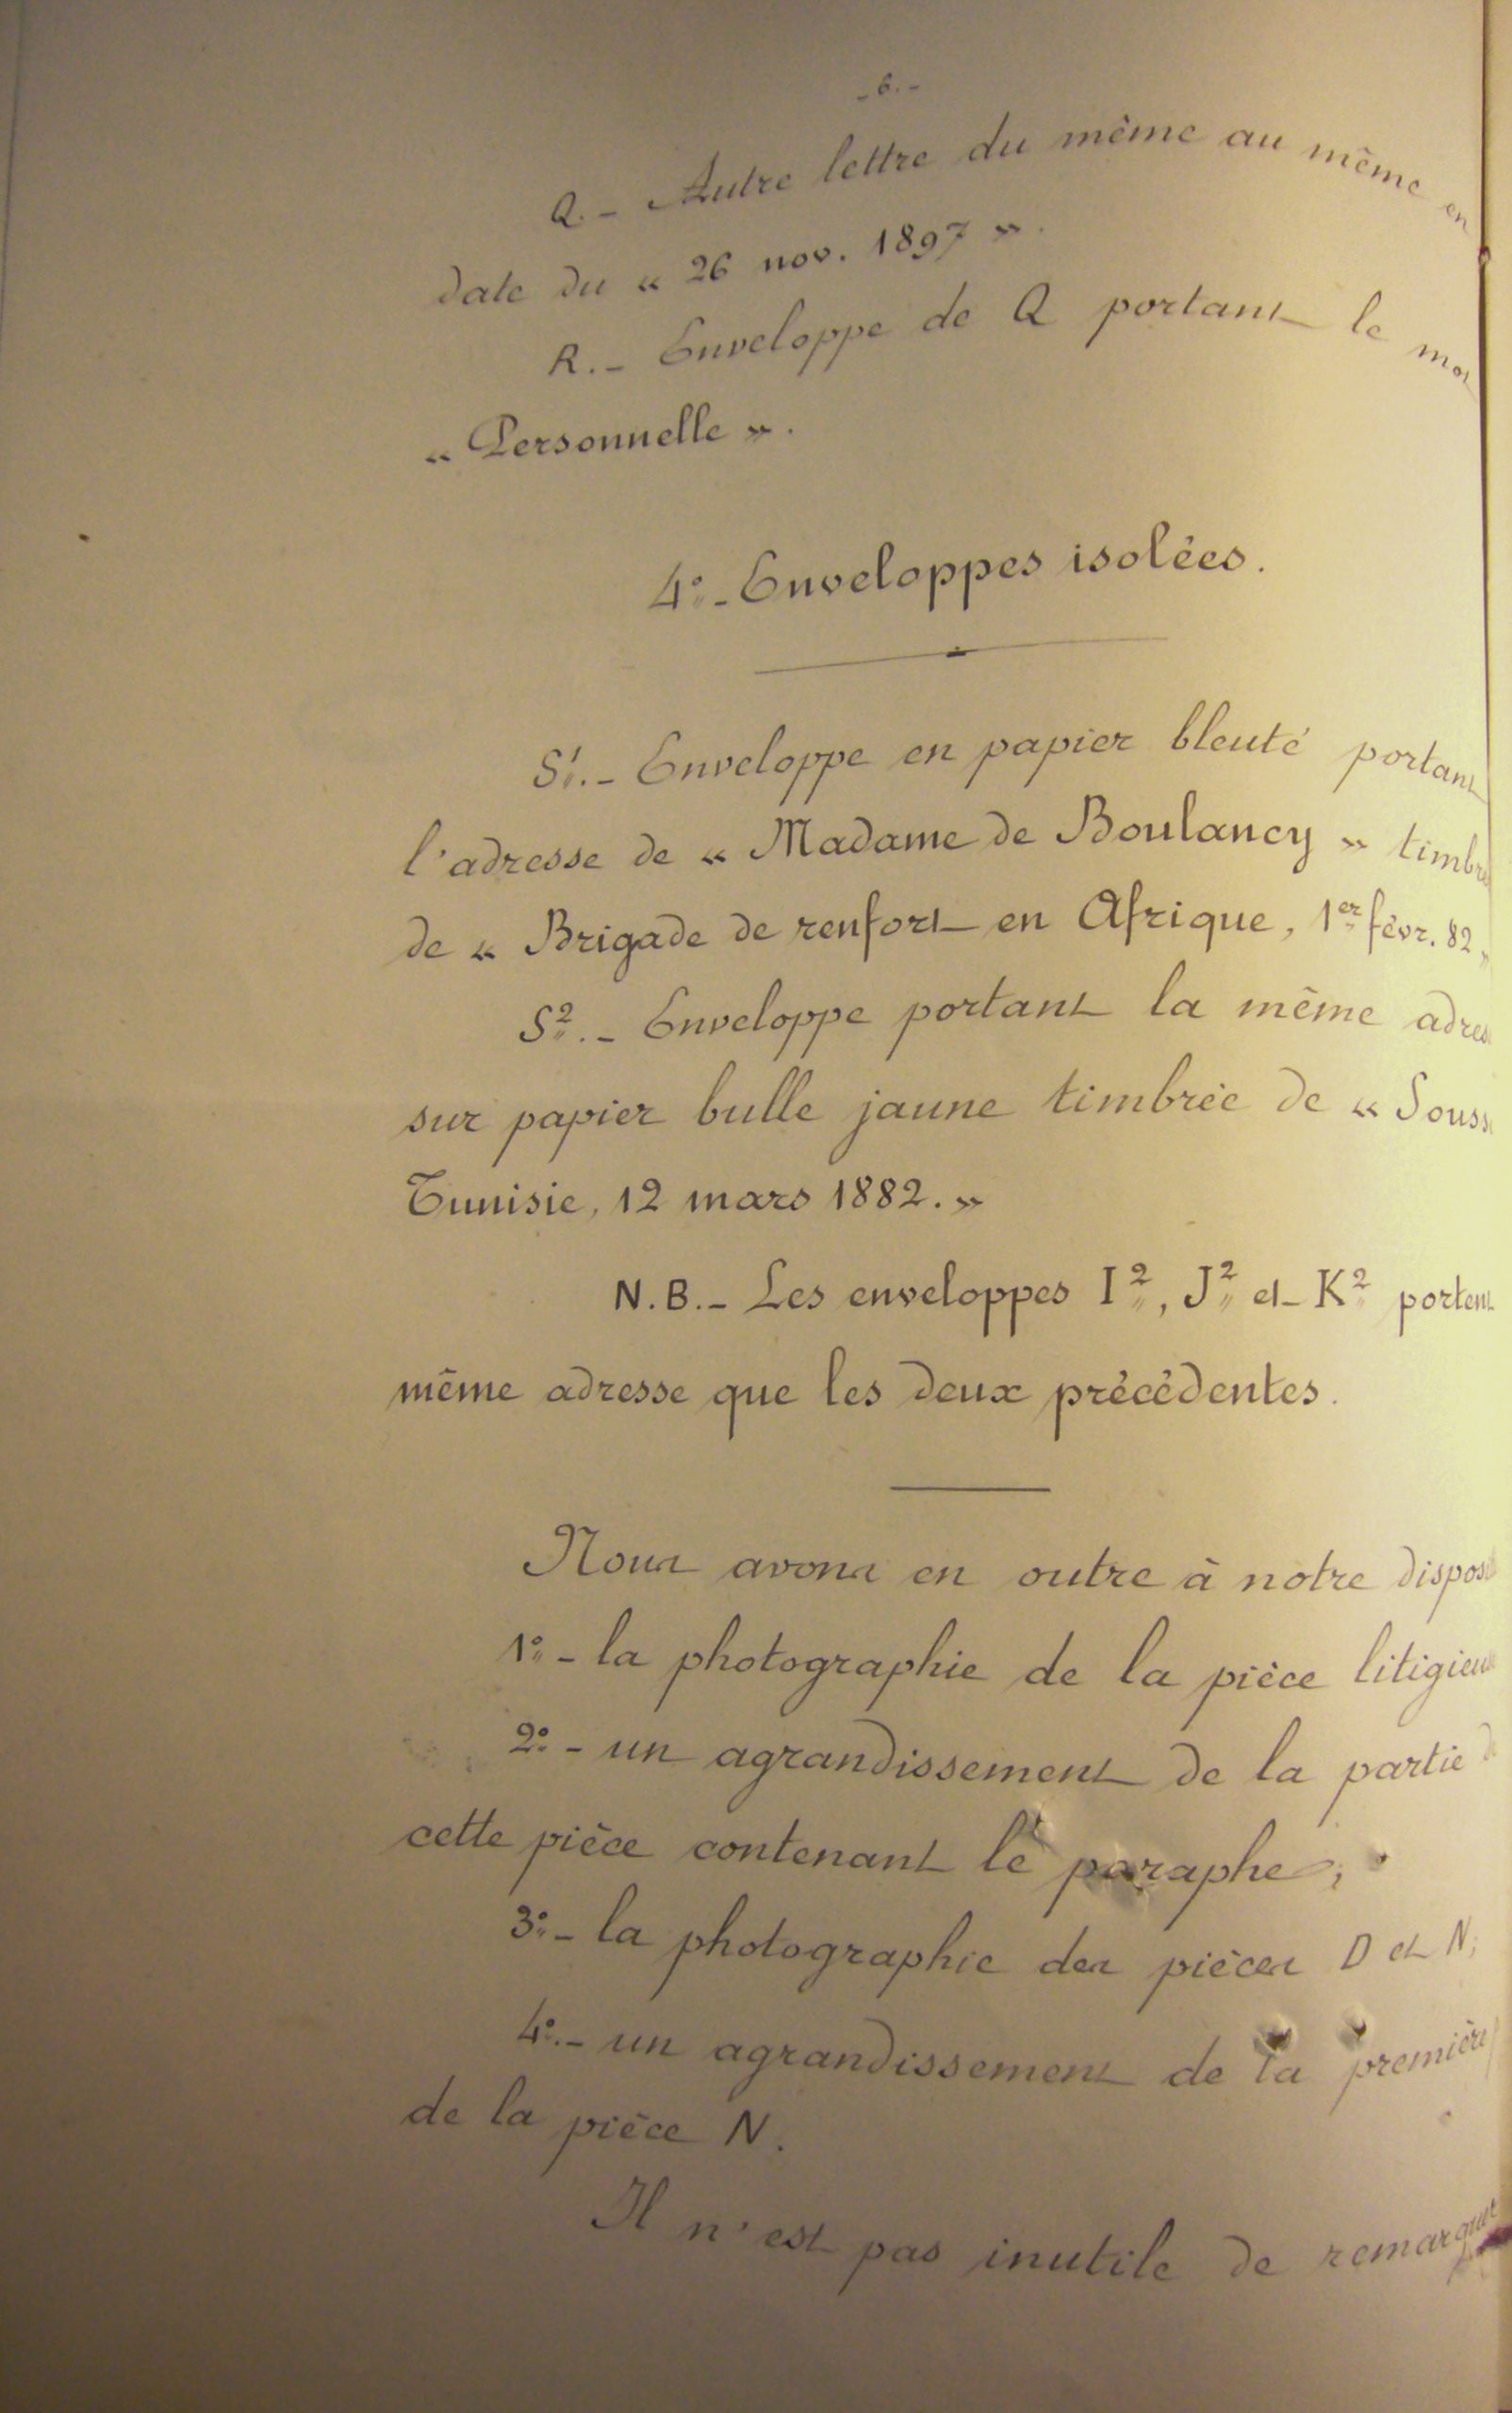 - 6. -
Q. - Autre lettre du même au même en
date du « 26 nov. 1897 ».
R. - Enveloppe de Q portant le mot
« Personnelle ».
4° - Enveloppes isolées.
S¹. - Enveloppe en papier bleuté portant
l'adresse de « Madame de Boulancy » timbré
de « Brigade de renfort en Afrique, 1er févr. 82 »
S². - Enveloppe portant la même adres
sur papier bulle jaune timbrée de « Souss
Tunisie, 12 mars 1882. »
N.B. - Les enveloppes I², J² et K² portent
même adresse que les deux précédentes.
Nous avons en outre à notre dispos
1° - la photographie de la pièce litigieu
2° - un agrandissement de la partie de
cette pièce contenant le paraphe ;
3° - la photographie des pièces D et N ;
4° - un agrandissement de la première
de la pièce N.
Il n'est pas inutile de remarquer